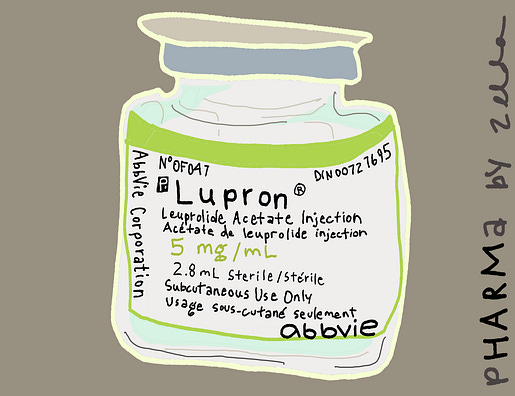 N°OF047
DIN00727695
P Lupron®
Leuprolide Acetate Injection
Acétate de leuprolide injection
5 mg/mL
2.8 mL Sterile/Stérile
Subcutaneous Use Only
usage sous-cutané seulement
abbvie
AbbVie Corporation
PHARMA by Zelda